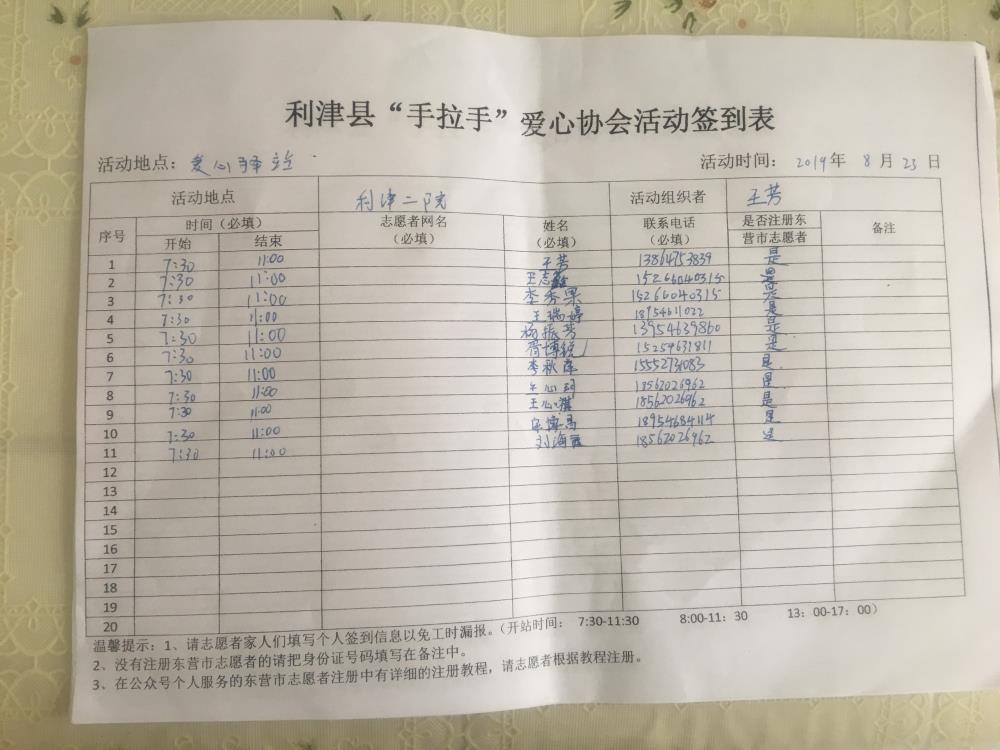 利津县“手拉手”爱心协会活动签到表
活动地点：爱心驿站 活动时间： 2019年 8月 23日
活动地点 利津二院 活动组织者 王芳
序号 时间（必填） 志愿者网名（必填） 姓名（必填） 联系电话（必填） 是否注册东营市志愿者 备注
开始 结束
1 7:30 11:00 王芳 13864753839 是
2 7:30 11:00 15266040315 是
3 7:30 11:00 李秀果 15266040315 是
4 7:30 11:00 王瑞婷 18954611022 是
5 7:30 11:00 杨振芳 13954639860 是
6 7:30 11:00 胥博锐 15254631811 是
7 7:30 11:00 15552731083 是
8 7:30 11:00 18562026962 是
9 7:30 11:00 王心祺 18562026962 是
10 7:30 11:00 18954684114 是
11 7:30 11:00 刘海霞 18562026962 是
12
13
14
15
16
17
18
19
20
温馨提示：1、请志愿者家人们填写个人签到信息以免工时漏报。（开站时间： 7:30-11:30 8:00-11：30 13：00-17：00）
2、没有注册东营市志愿者的请把身份证号码填写在备注中。
3、在公众号个人服务的东营市志愿者注册中有详细的注册教程，请志愿者根据教程注册。